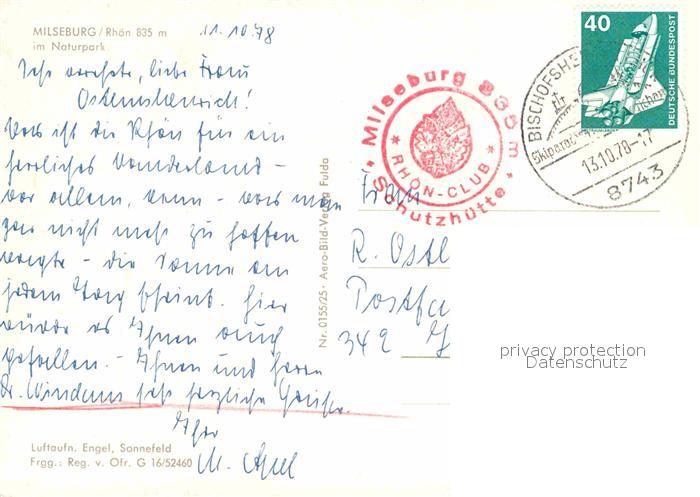 MILSEBURG/Rhön 835 m
im Naturpark
11.10.78
Sehr verehrte, liebe Frau
Was ist die Rhön für ein
herrliches Wanderland –
vor allem, wenn – was man
gar nicht mehr zu hoffen
wagte – die Sonne an
jedem Tag scheint. Hier
würde es Ihnen auch
gefallen. – Ihnen und Herrn
Dr. Windaus sehr herzliche Grüße.
Ihr
M. Apel
Luftaufn. Engel, Sonnefeld
Frgg.: Reg. v. Ofr. G 16/52460
Nr. 0155/25 · Aero-Bild-Verlag Fulda
Milseburg 835 m
RHÖN-CLUB
Schutzhütte
40
DEUTSCHE BUNDESPOST
BISCHOFSHE
13.10.78-17
8743
Frau
R. Ostl
Postfa
349
privacy protection
Datenschutz